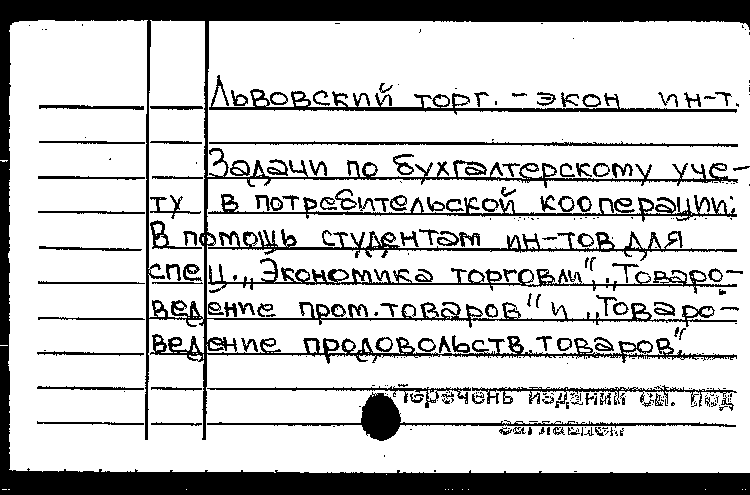 Львовский торг. - экон ин-т.
Задачи по бухгалтерскому уче-
ту в потребительской кооперации:
В помощь студентам ин-тов для
спец. „Экономика торговли", „Товаро-
ведение пром. товаров" и „Товаро-
ведение продовольств. товаров".
Перечень изданий см. под
заглавием